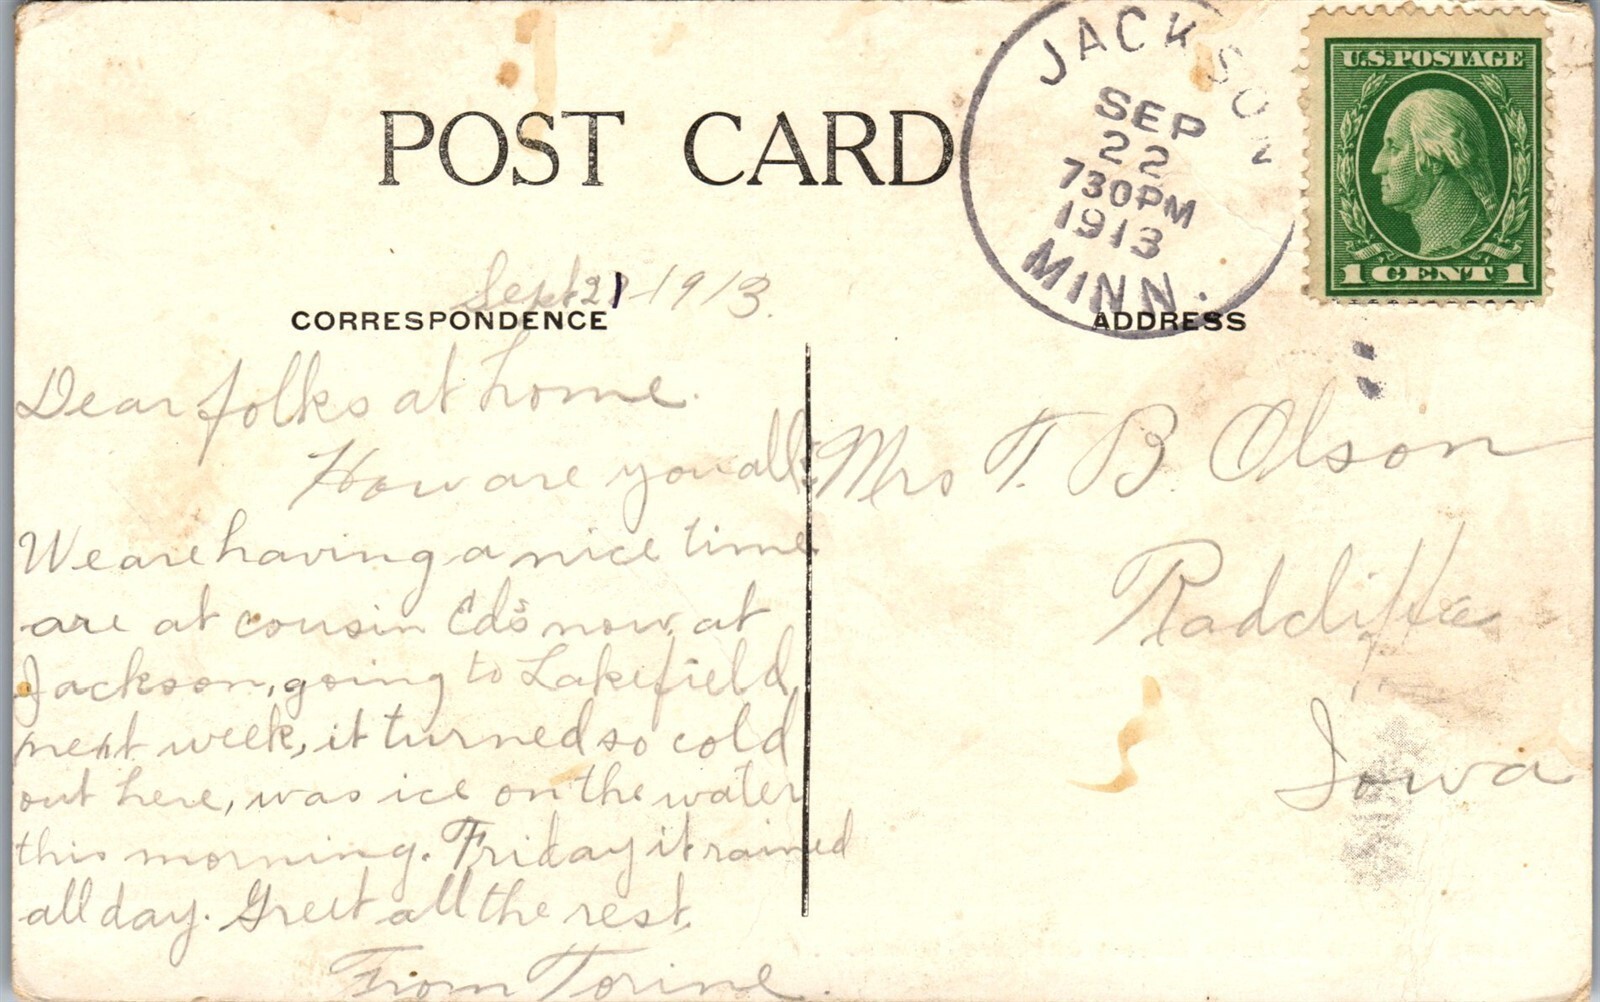 POST CARD
JACKSON
SEP
22
730PM
1913
MINN.
U.S. POSTAGE
1 CENT 1
Sept 21-1913.
CORRESPONDENCE
ADDRESS
Dear folks at home.
How are you all?
We are having a nice time
are at cousin Ed's now, at
Jackson, going to Lakefield
next week, it turned so cold
out here, was ice on the water
this morning. Friday it rained
all day. Greet all the rest,
From Torine.
Mrs T. B. Olson
Radcliffe
Iowa